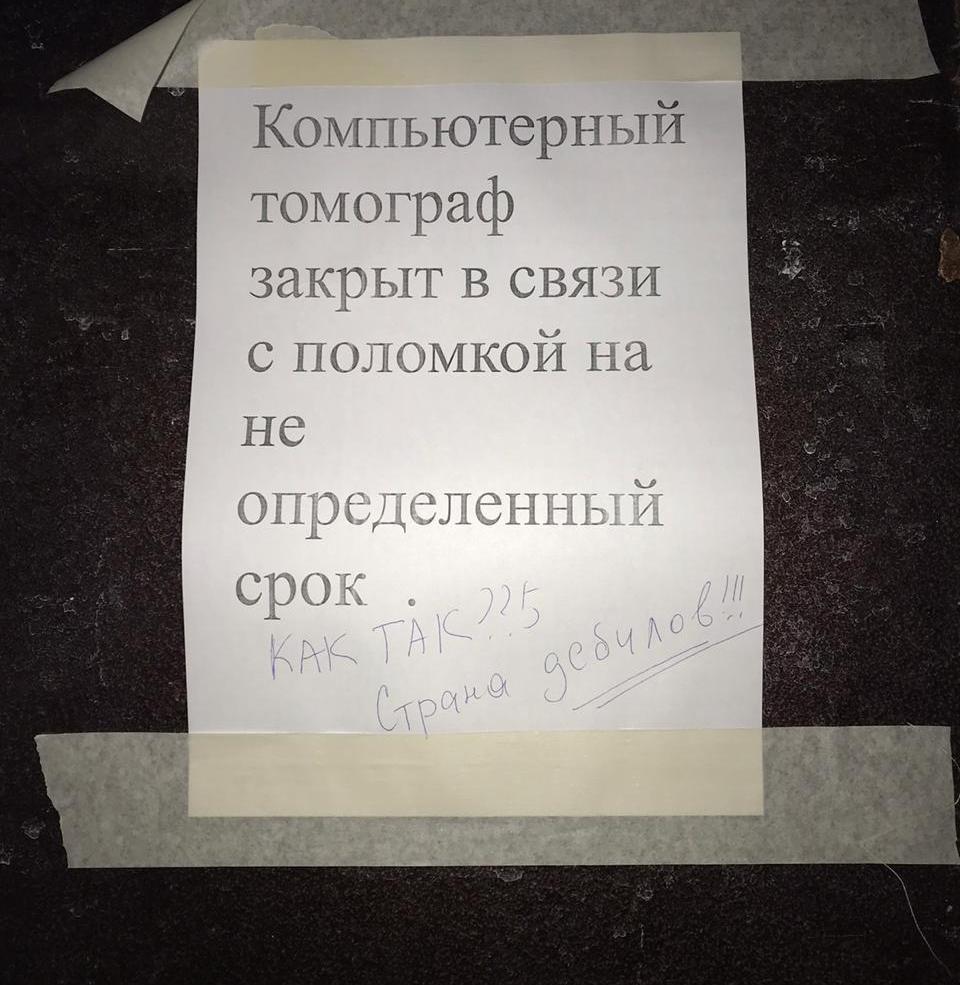 Компьютерный
томограф
закрыт в связи
с поломкой на
не
определенный
срок .
КАК ТАК???
Страна дебилов!!!